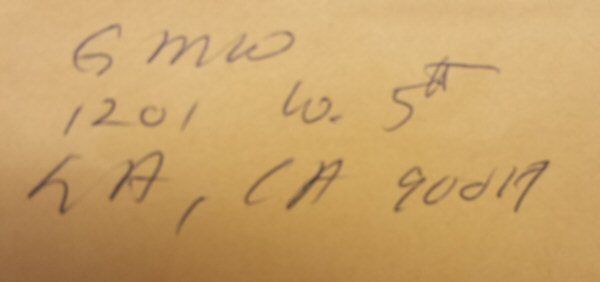 GMW
1201 W. 5th
LA, CA 90017